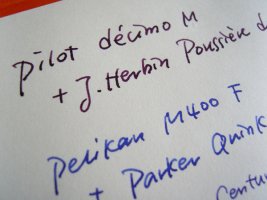 Pilot décimo M
+ J. Herbin Poussière d
Pelikan M400 F
+ Parker Quink
Centur